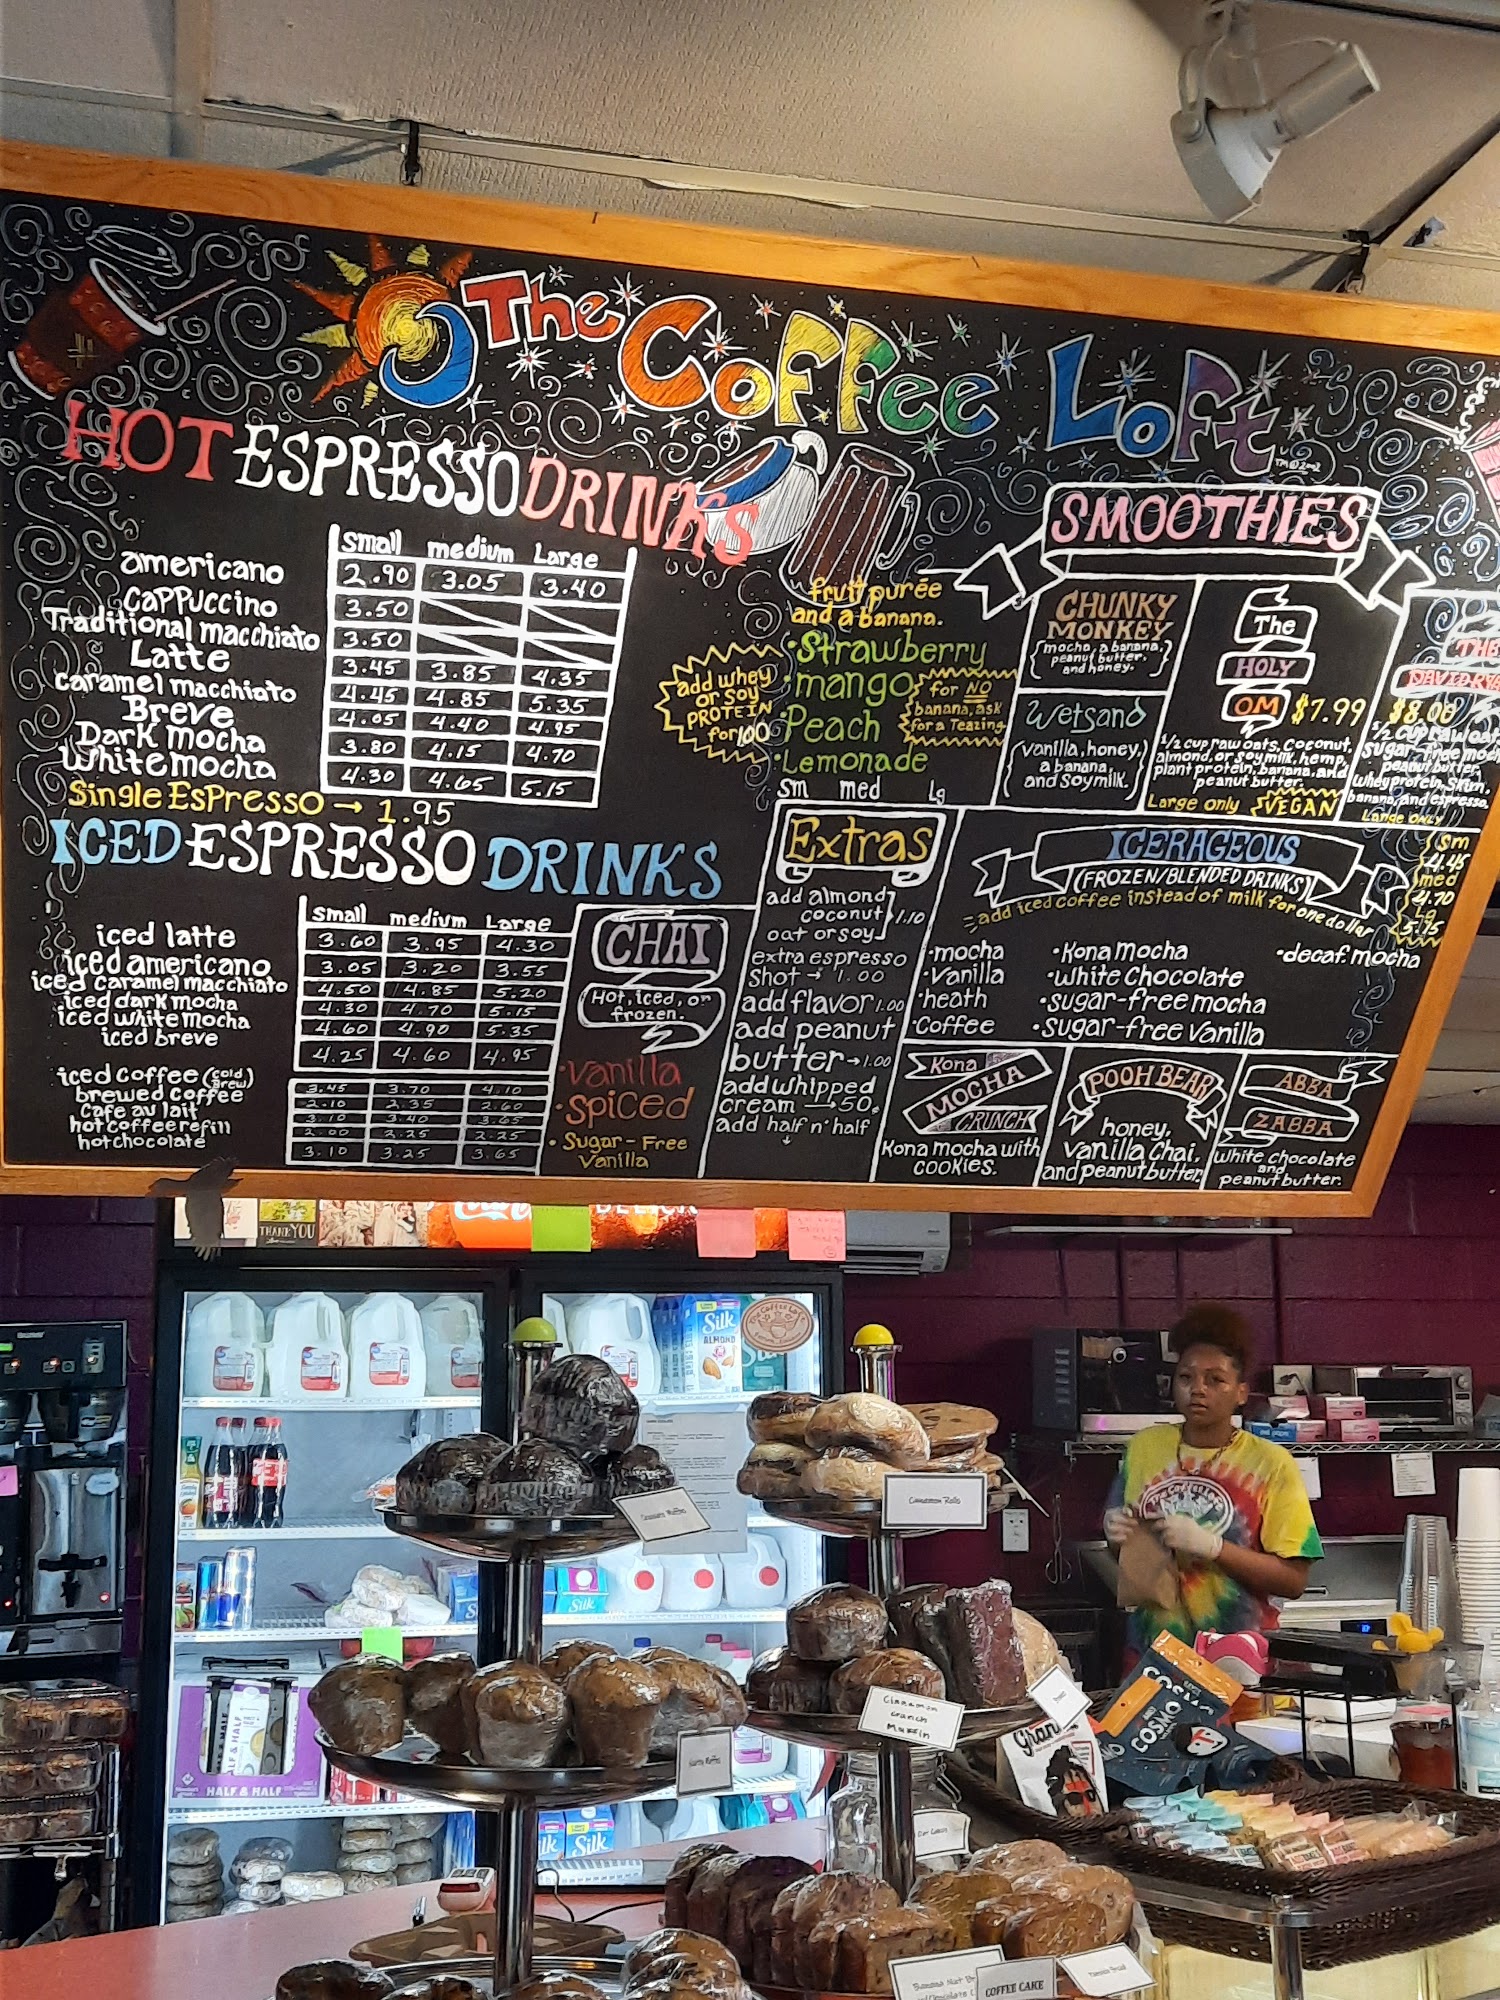 The Coffee Loft
TM © 2002
HOT ESPRESSO DRINKS
small medium Large
americano 2.90 3.05 3.40
cappuccino 3.50
Traditional macchiato 3.50
Latte 3.45 3.85 4.35
caramel macchiato 4.45 4.85 5.35
Breve 4.05 4.40 4.95
Dark mocha 3.80 4.15 4.70
White mocha 4.30 4.65 5.15
Single Espresso → 1.95
ICED ESPRESSO DRINKS
small medium Large
iced latte 3.60 3.95 4.30
iced americano 3.05 3.20 3.55
iced caramel macchiato 4.50 4.85 5.20
iced dark mocha 4.30 4.70 5.15
iced white mocha 4.60 4.90 5.35
iced breve 4.25 4.60 4.95
iced coffee (cold Brew) 3.45 3.70 4.10
brewed coffee 2.10 2.35 2.60
Cafe au lait 3.10 3.40 3.65
hot coffee refill 2.00 2.25 2.25
hot chocolate 3.10 3.25 3.65
CHAI
Hot, iced, or
frozen.
•vanilla
•spiced
•Sugar-Free
Vanilla
add whey
or soy
PROTEIN
for 1.00
fruit purée
and a banana.
•Strawberry
•mango
•Peach
•Lemonade
for NO
banana, ask
for a Teazing
sm med Lg
SMOOTHIES
CHUNKY
MONKEY
(mocha, a banana,
peanut butter,
and honey.)
Wetsand
(vanilla, honey,
a banana
and soymilk.)
The
HOLY
OM $7.99
1/2 cup raw oats, coconut,
almond, or soymilk, hemp,
plant protein, banana, and
peanut butter.
Large only VEGAN
THE
$8.00
1/2 cup raw oat
sugar-free moch
peanut butter,
whey protein, skim,
banana, and espresso.
Large ONLY
Extras
add almond
coconut 1.10
oat or soy
extra espresso
shot → 1.00
add flavor 1.00
add peanut
butter → 1.00
add whipped
cream → 50¢
add half n' half
↓
ICERAGEOUS
(FROZEN/BLENDED DRINKS)
add iced coffee instead of milk for one dollar
sm
4.45
med
4.70
Lg
5.15
•mocha
•Vanilla
•heath
•Coffee
•Kona Mocha
•White Chocolate
•sugar-free mocha
•sugar-free vanilla
•decaf. mocha
Kona
MOCHA
CRUNCH
Kona mocha with
cookies.
POOH BEAR
honey,
vanilla chai,
and peanut butter.
ABBA
ZABBA
White chocolate
and
peanut butter.
THANK YOU
Silk
ALMOND
The Coffee Loft
Silk
HALF & HALF
HALF & HALF
Silk
Cinnamon Rolls
Cinnamon
Crunch
Muffin
The Coffee Loft
Gran
COSMO
COFFEE CAKE